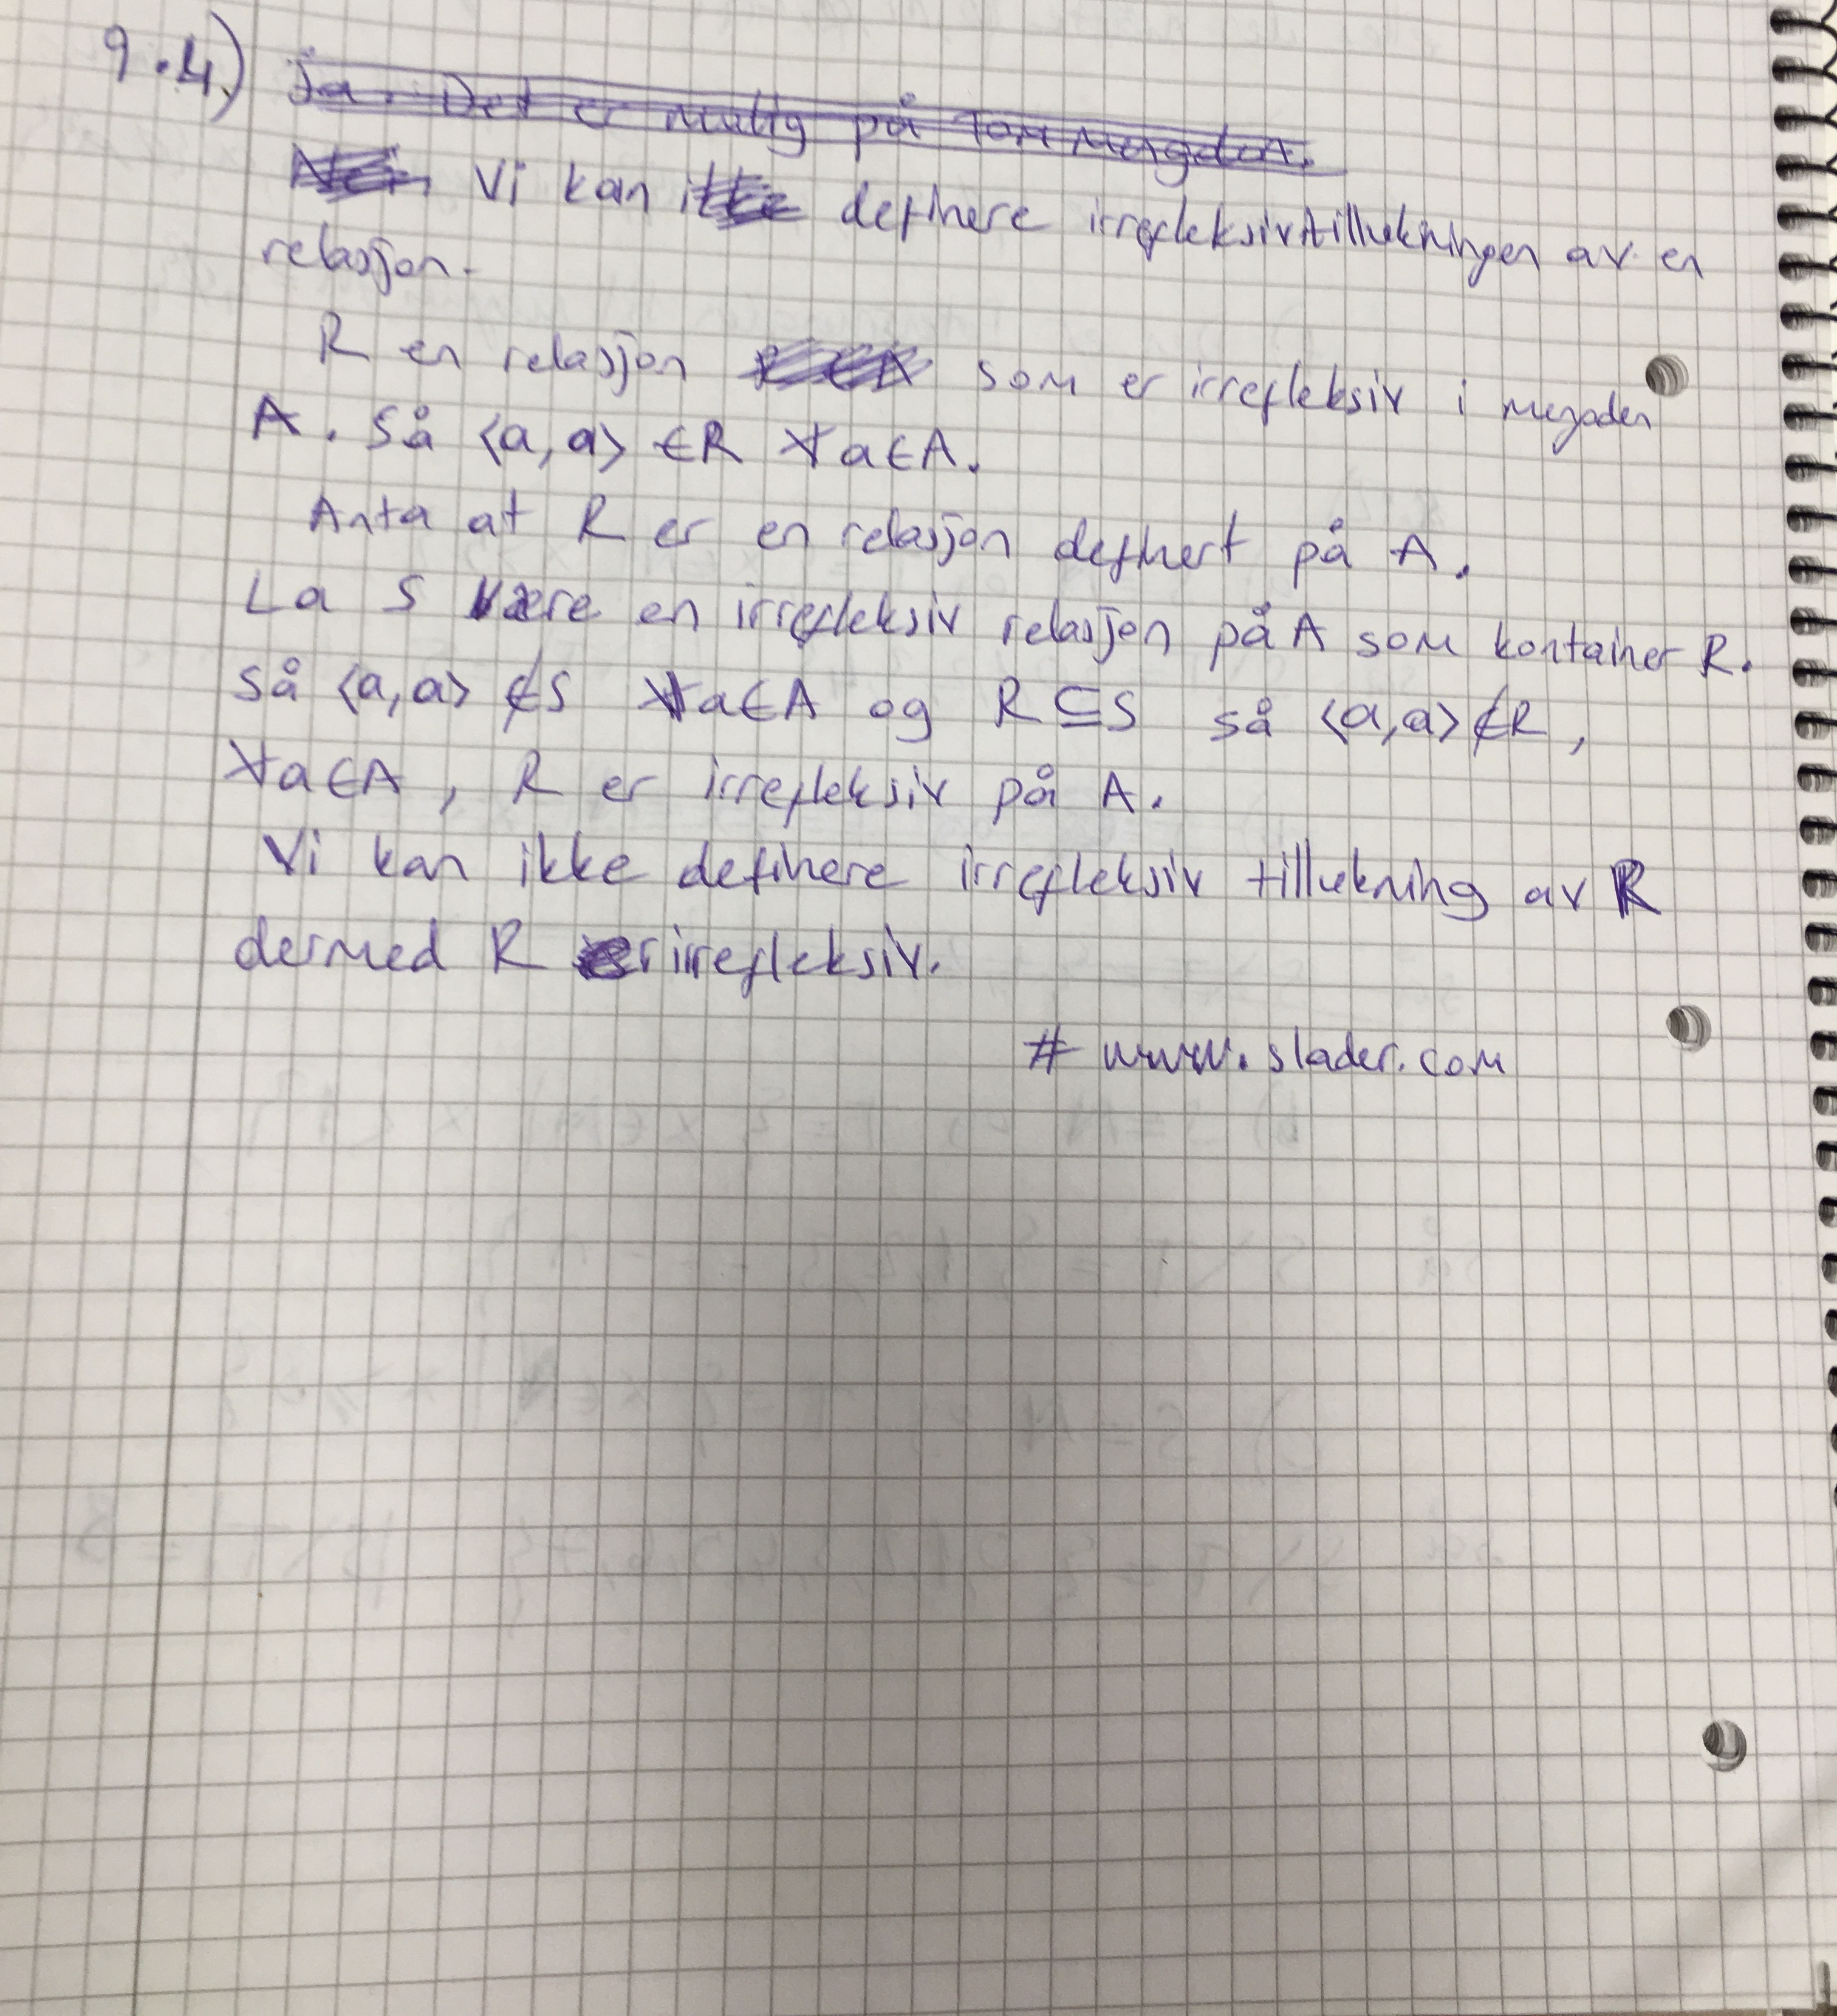 9.4.) Ja. Det er mulig på Tom mengden.
Nei Vi kan ikke definere irrefleksivt tillukningen av en
relasjon.
R en relasjon som er irrefleksiv i mengden
A. Så ⟨a, a⟩ ∈R ∀a∈A.
Anta at R er en relasjon definert på A.
La S være en irrefleksiv relasjon på A som kontainer R.
så ⟨a, a⟩ ∉S ∀a∈A og R⊆S så ⟨a, a⟩∉R,
∀a∈A, R er irrefleksiv på A.
Vi kan ikke definere irrefleksiv tillukning av R
dermed R er irrefleksiv.
# www.slader.com